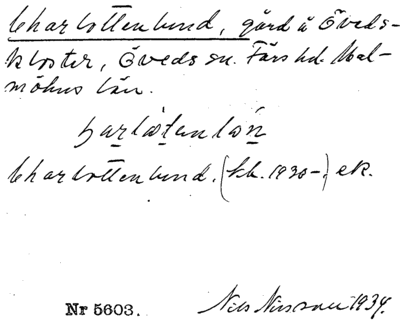 Charlottenlund, gård å Öveds-
kloster, Öveds sn. Färs hd. Mal-
möhus län.
Charlottenlund. (kb. 1930-) ek.
Nr 5603. Nils Nilsson 1934.